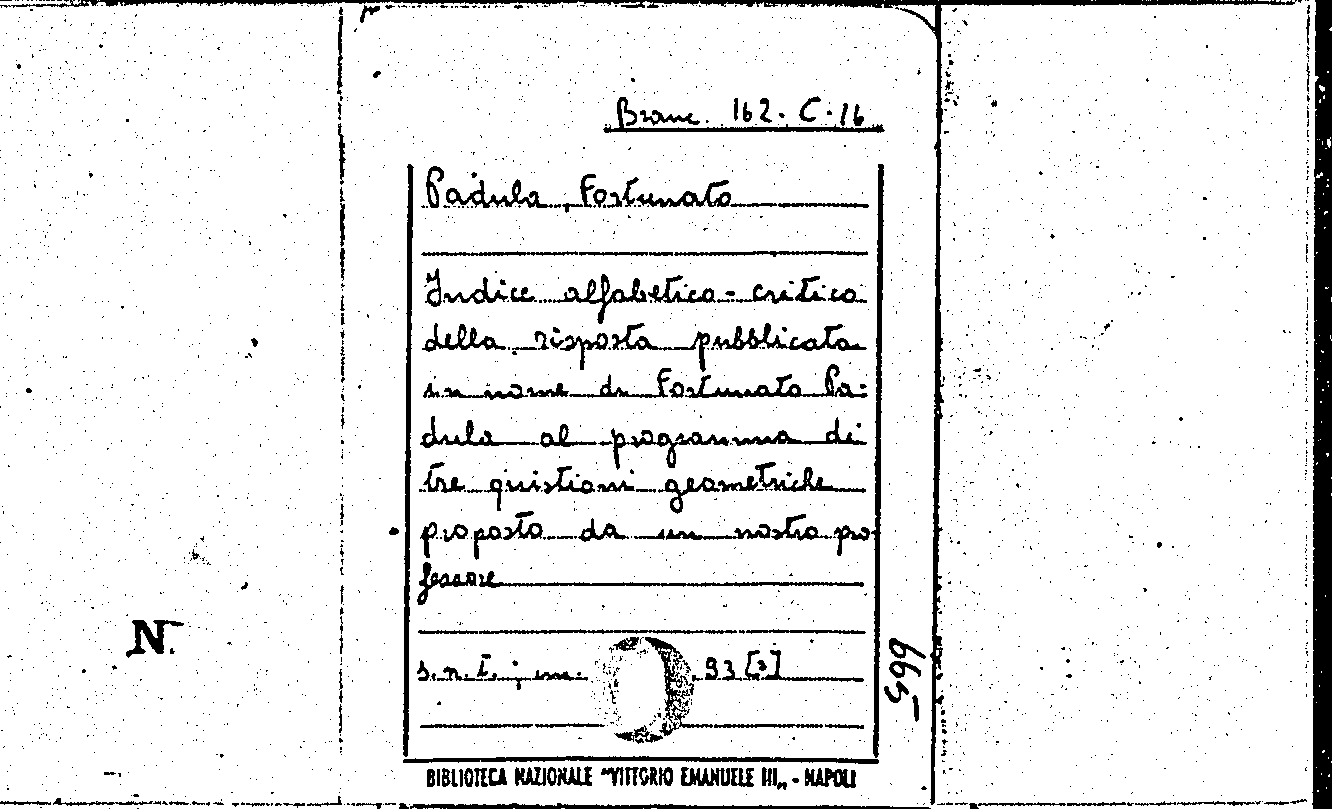 Branc. 162. C. 16
Padula, Fortunato
Indice alfabetico-critico
della risposta pubblicata
in nome di Fortunato Pa-
dula al programma di
tre quistioni geometriche
proposto da un nostro pro
fessore
s.n.t.; cm. 93 [2]
665
N.
BIBLIOTECA NAZIONALE "VITTORIO EMANUELE III„ - NAPOLI